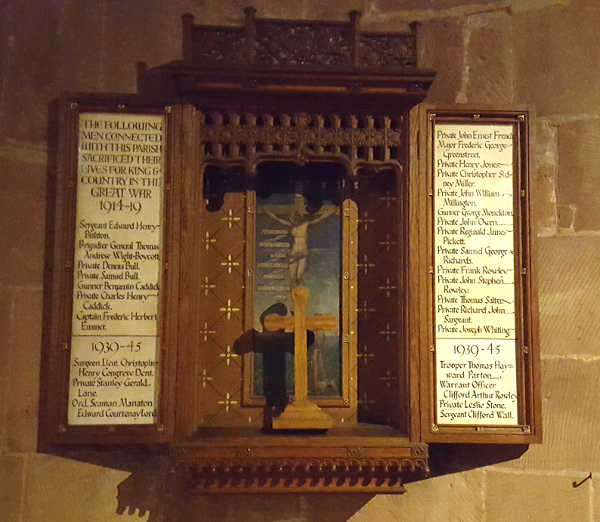 THE FOLLOWING
MEN CONNECTED
WITH THIS PARISH
SACRIFICED THEIR
LIVES FOR KING &
COUNTRY IN THE
GREAT WAR
1914-19
Sergeant Edward Henry
Bishton.
Brigadier General Thomas
Andrew Wight-Boycott.
Private Dennis Bull.
Private Samuel Bull.
Gunner Benjamin Caddick.
Private Charles Henry
Caddick.
Captain Frederic Herbert
Emmet.
1939-45
Surgeon Lieut. Christopher
Henry Congreve Dent.
Private Stanley Gerald
Lane.
Ord. Seaman Manaton
Edward Courtenay Lord.
Private John Ernest French.
Major Frederic George
Greenstreet.
Private Henry Jones.
Private Christopher Sid-
ney Miller.
Private John William
Millington.
Gunner George Monckton.
Private John Owen.
Private Reginald James
Pickett.
Private Samuel George
Richards.
Private Frank Rowley.
Private John Stephen
Rowley.
Private Thomas Salter.
Private Richard John
Sargeant.
Private Joseph Whiting
1939-45
Trooper Thomas Hay-
ward Parton.
Warrant Officer
Clifford Arthur Rowley
Private Leslie Stone.
Sergeant Clifford Wall.